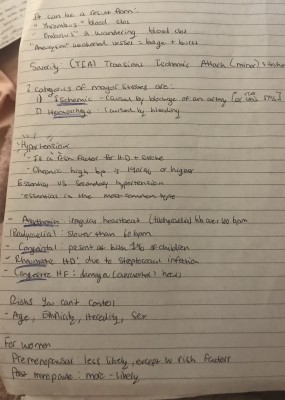 It can be a result from:
"Thrombus" - blood clot
"Embolus" a wandering blood clot
"Aneurysm" weakened vessels + bulge + burst
Severity: (TEA) Transient Ischemic Attack (minor)
2 categories of major strokes are:
1) Ischemic - caused by blockage of an artery
2) Hemorrhagic: Caused by bleeding
"Hypertension"
- Is a risk factor for H.D + stroke
- Chronic high bp is 140/90 or higher
Essential VS Secondary hypertension
"essential is the most common type
- Arrythmia: irregular heartbeat (tachycardia) hb over 100 bpm
(Bradycardia): slower than 60 bpm
- Congenital: present at birth 1% of children
- Rheumatic H.D: due to Streptococcal infection
- Congestive HF: damage (overworked heart)
Risks you can't control
- Age, Ethnicity, Heredity, Sex
For women
Premenopausal less likely, except w risk factors
Post menopause: more likely